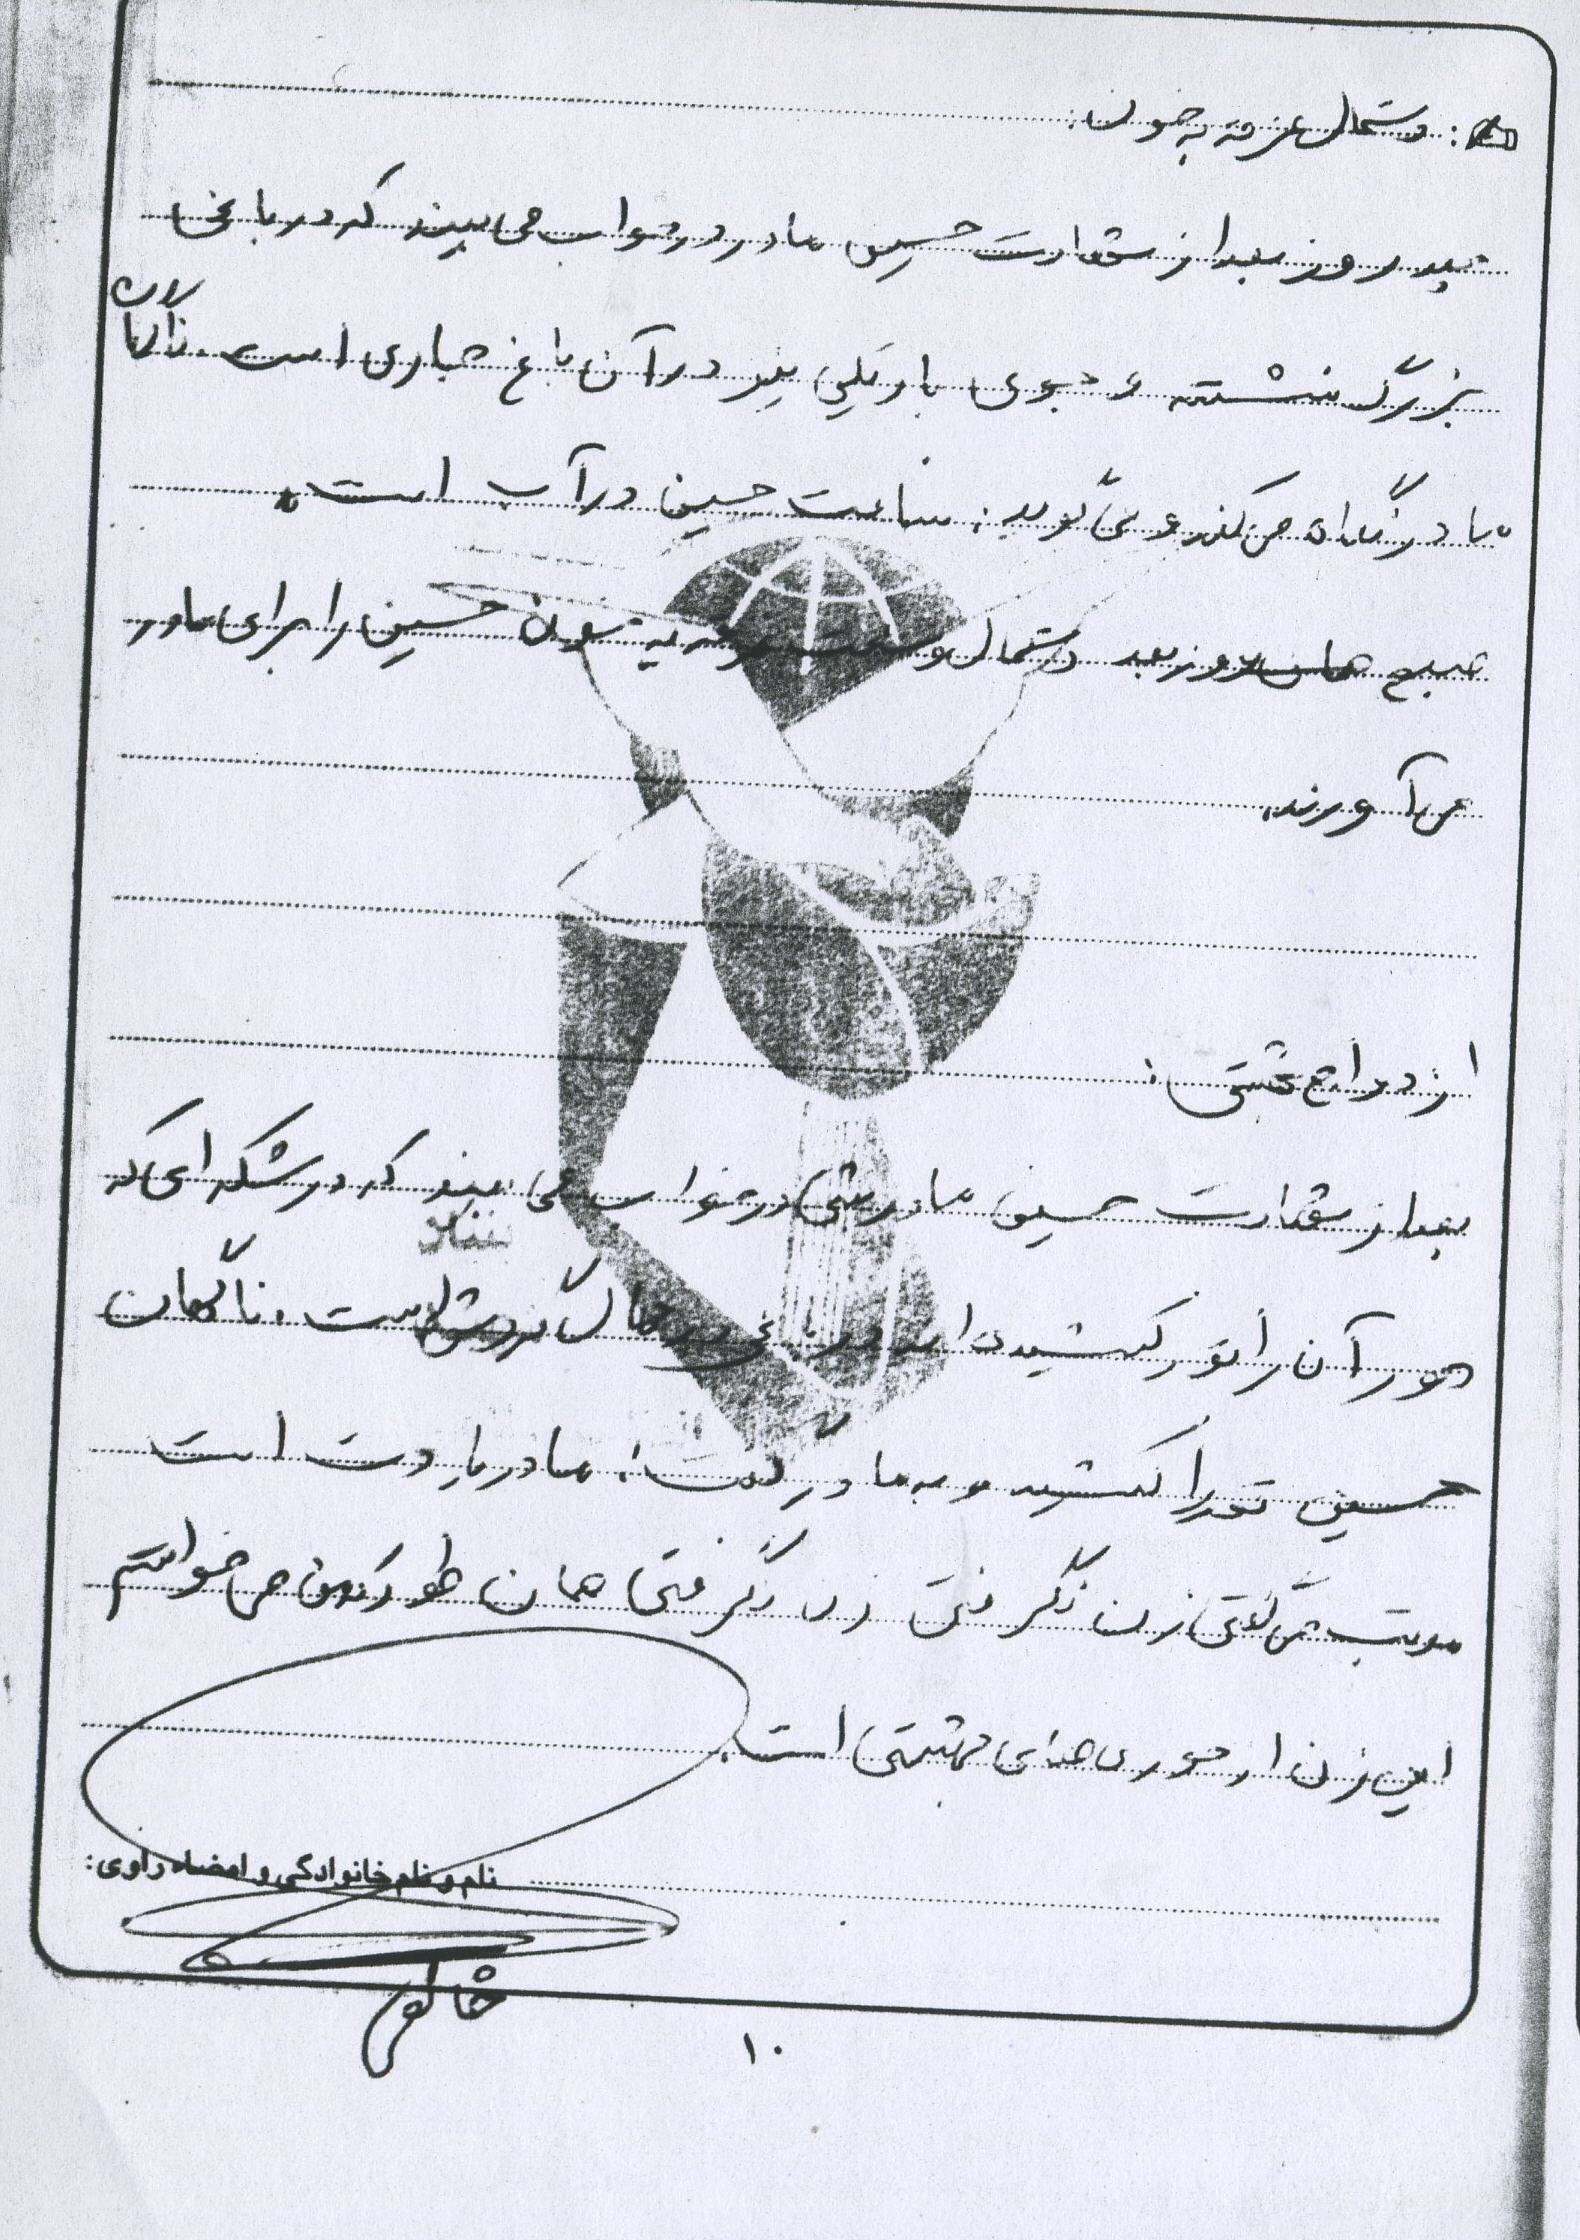 دستمال غرقه به خون:
چند روز بعد از شهادت حسین مادر در خواب می بیند که در باغی
بزرگ نشسته و جوی باریکی نیز در آن باغ جاری است. ناگهان
مادر نگاه می کند و می گوید: ساعت حسین در آب است.
صبح همان روز بعد دستمال و ساعت غرقه به خون حسین را برای مادر
می آورند.
ازدواج بهشتی:
بعد از شهادت حسین مادرش در خواب می بیند که درشکه ای که
دور آن را تور کشیده اند در باغی در حال گردش است. ناگهان
حسین تور را کشید و به مادر گفت: مادر یادت است
می گفتی زن نگرفتی زن نگرفتی همان طور که می خواستم
این زن از حوری های بهشتی است.
نام و نام خانوادگی و امضاء راوی:
۱۰